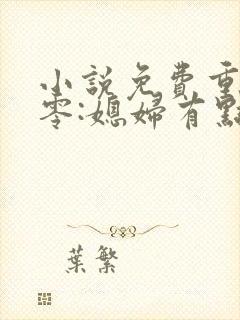 小說免費重
零:媳婦有點
葉繁